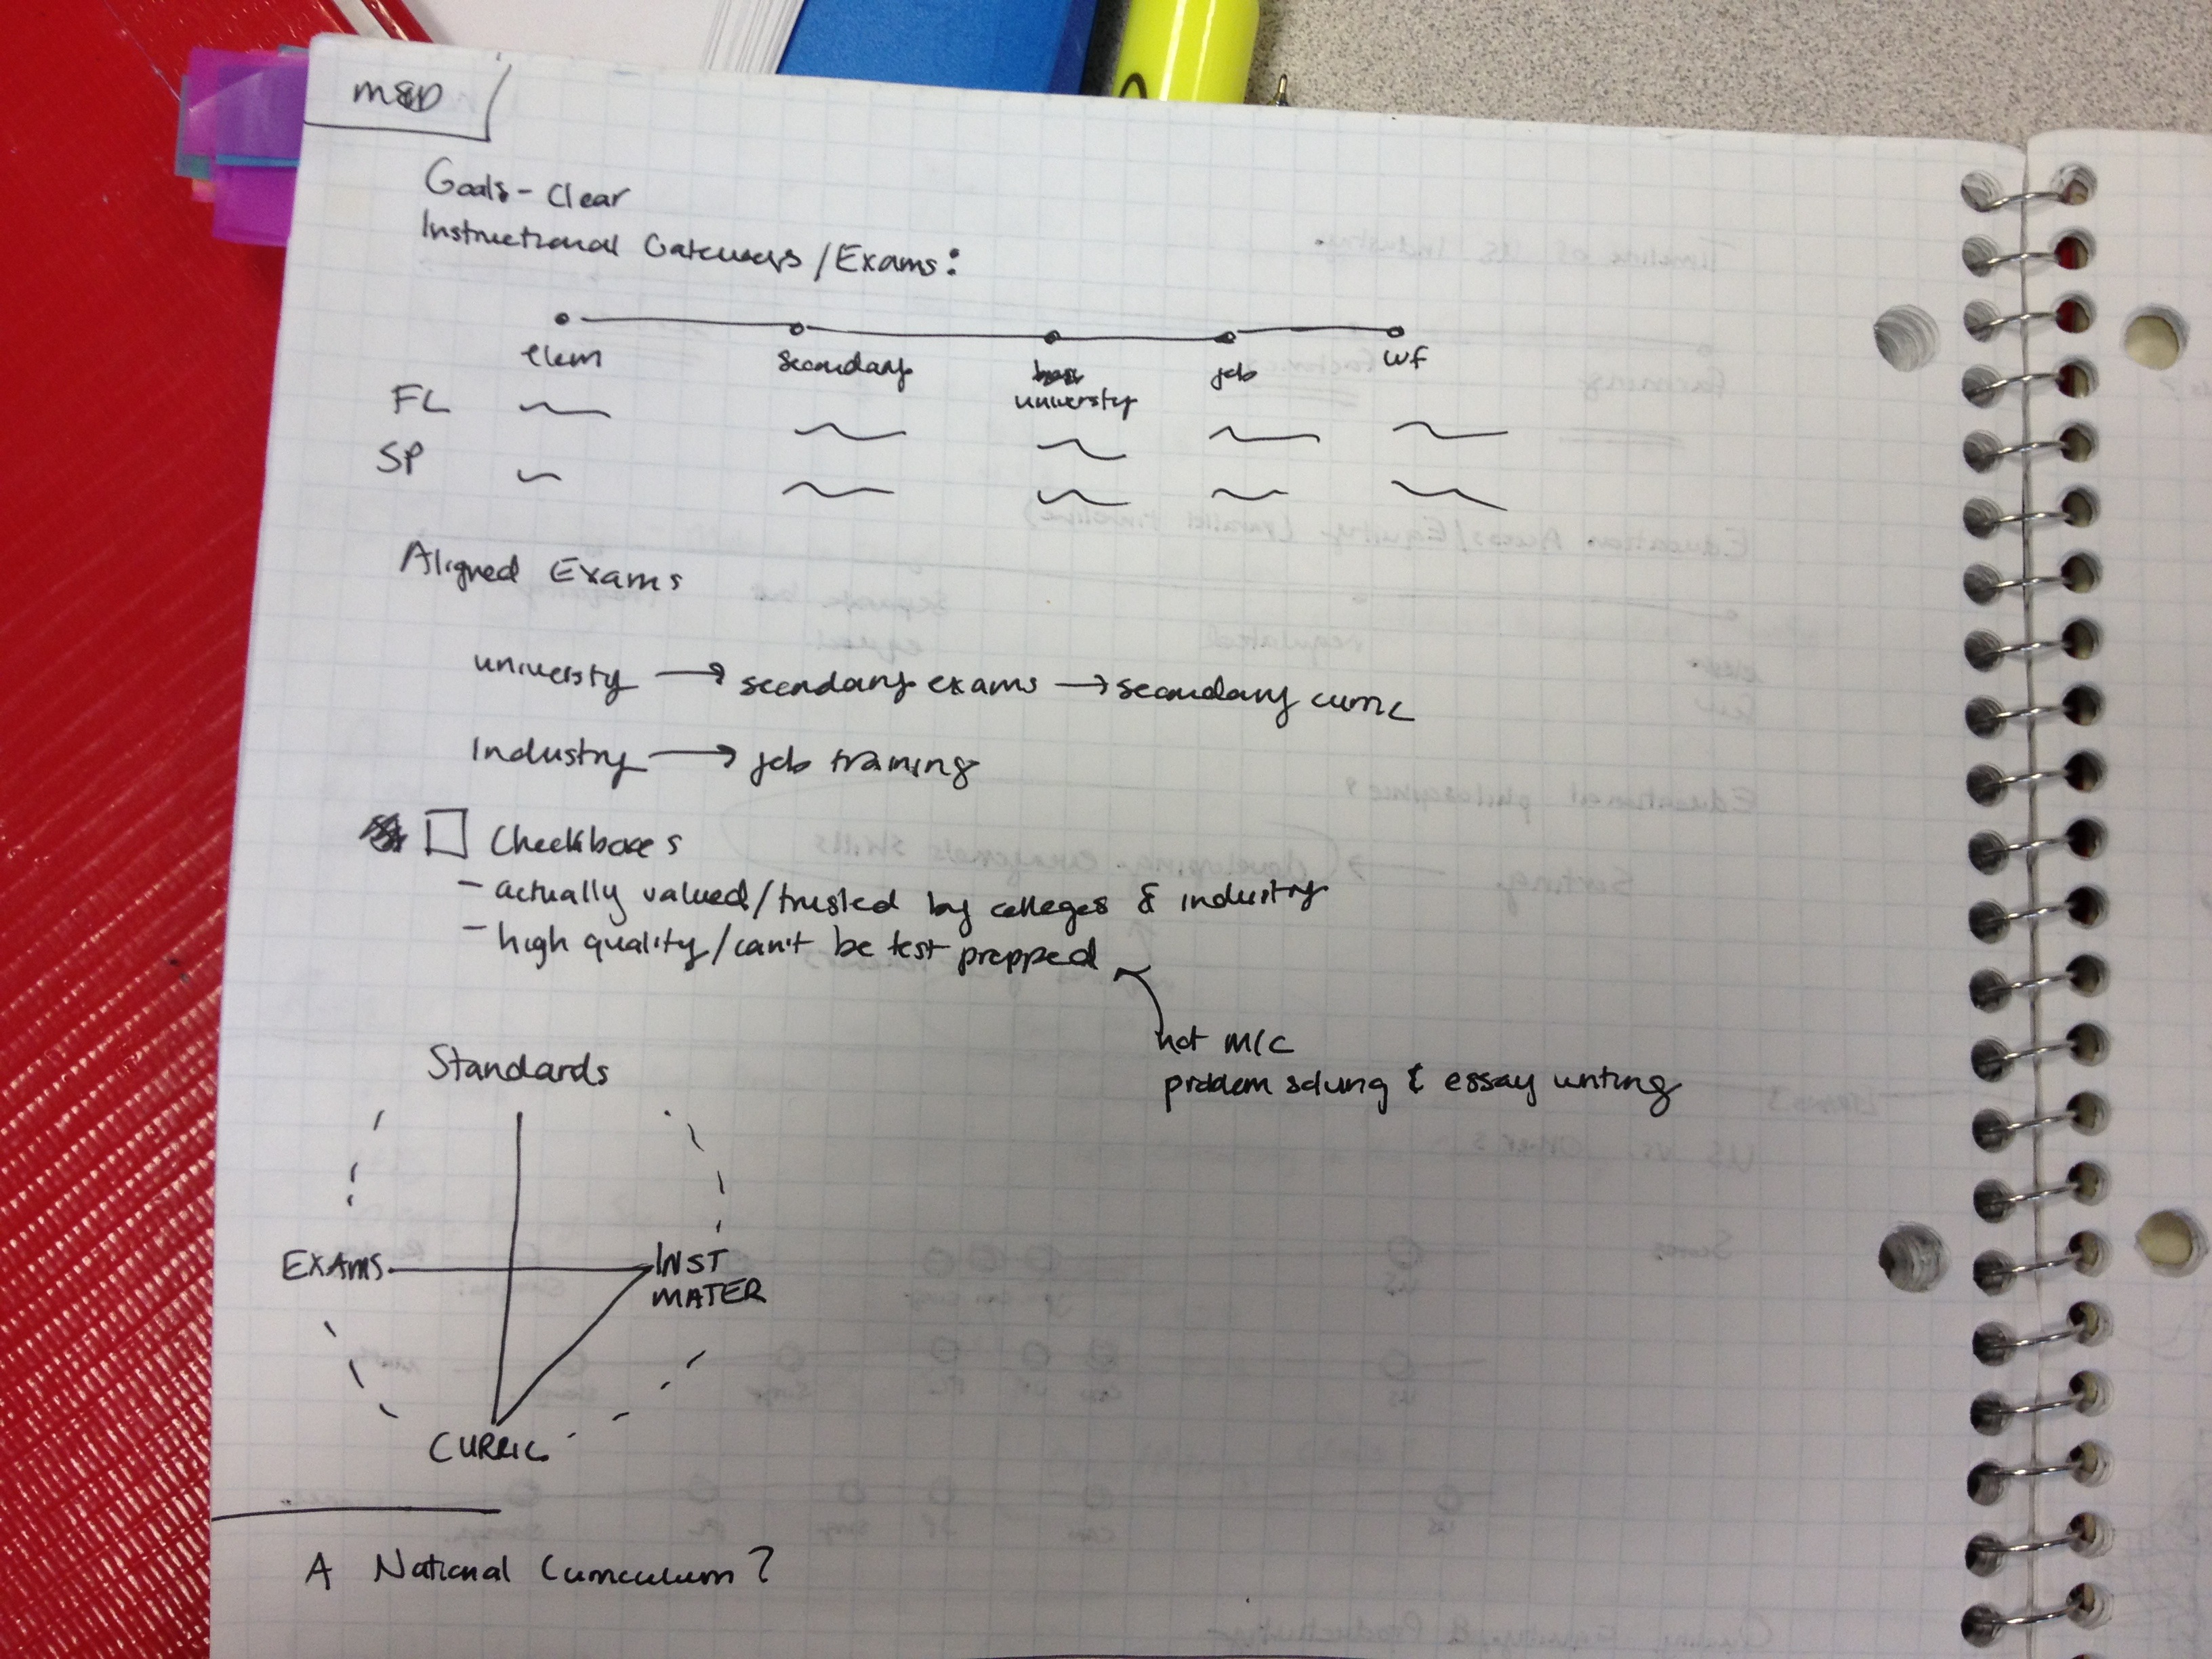 M&D
Goals - Clear
Instructional Gateways/Exams:
elem secondary university job wf
FL
SP
Aligned Exams
university → secondary exams → secondary curric
Industry → job training
□ Checkboxes
- actually valued/trusted by colleges & industry
- high quality/can't be test prepped
not M/C
problem solving & essay writing
Standards
EXAMS INST
MATER
CURRIC
A National Curriculum?